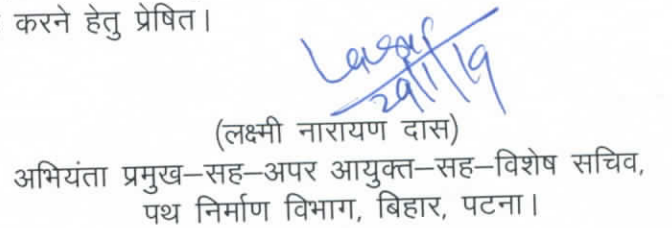 करने हेतु प्रेषित।
29/1/19
(लक्ष्मी नारायण दास)
अभियंता प्रमुख–सह–अपर आयुक्त–सह–विशेष सचिव,
पथ निर्माण विभाग, बिहार, पटना।